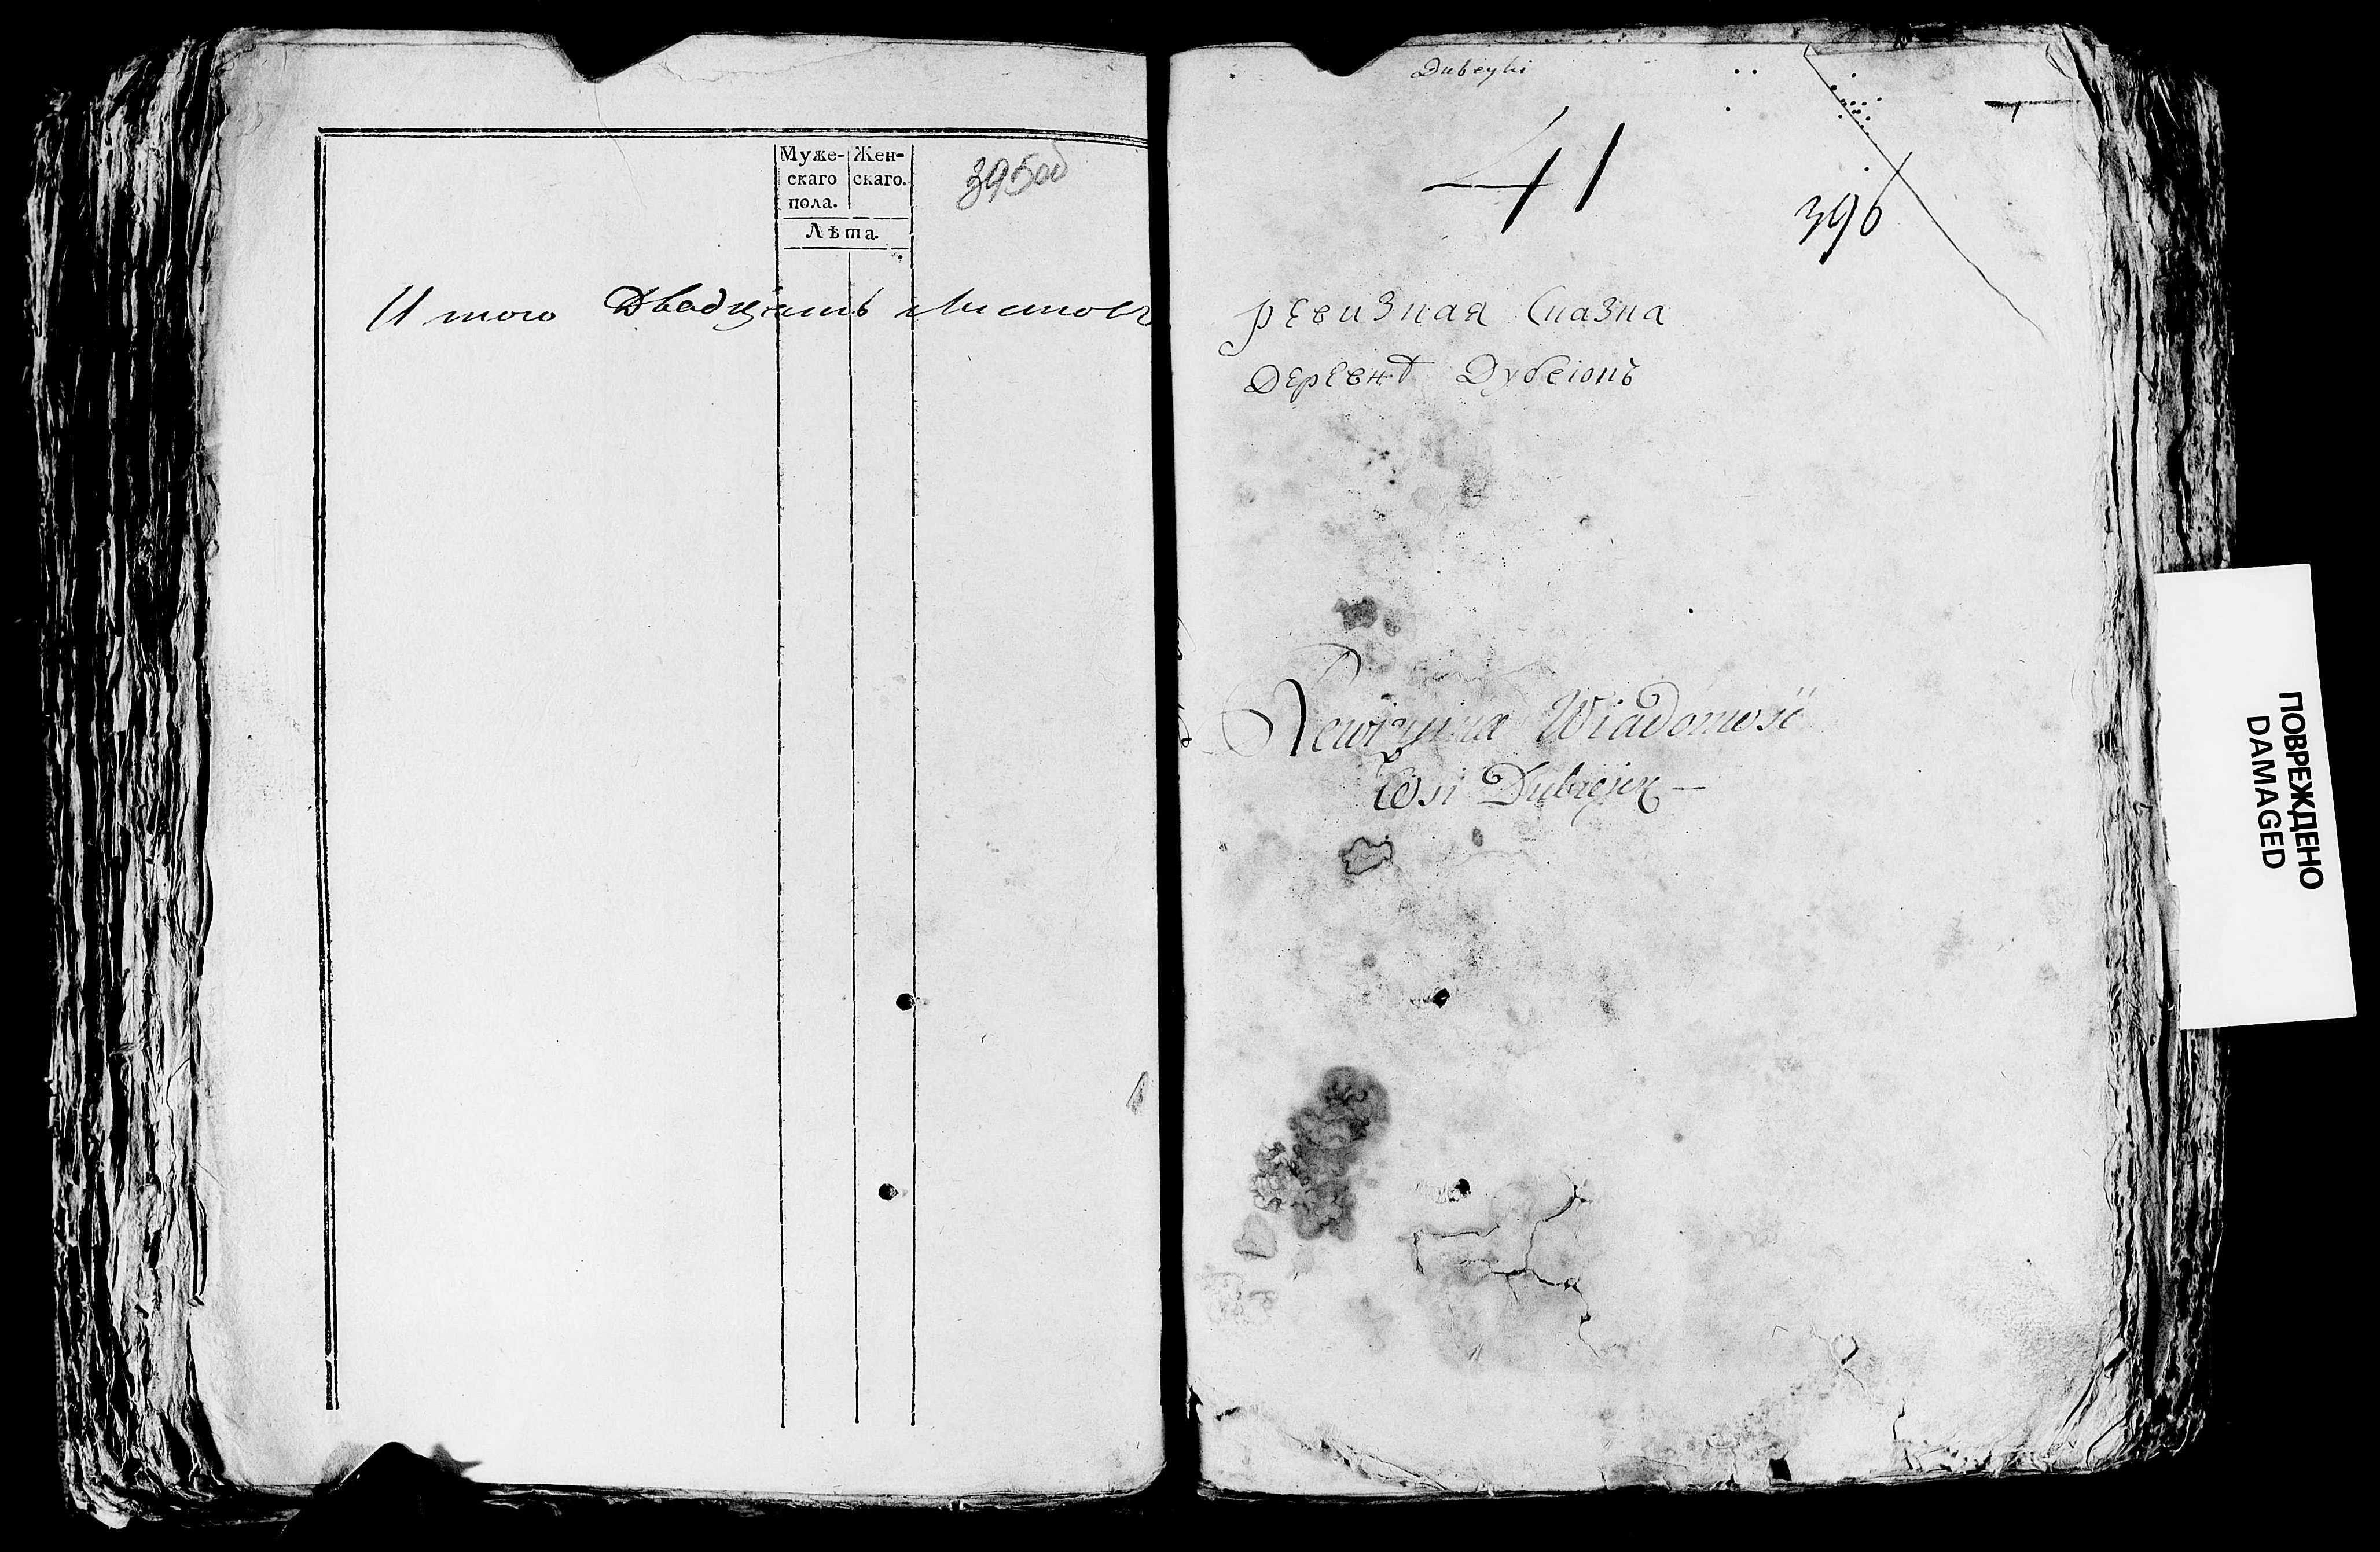 Муже-
скаго
пола.
Жен-
скаго.
Лѣта.
395об
Итого Двадцать Листовъ
Dubeyki
41
396
Ревизная Сказка
Деревнѣ Дубеюкъ
Rewizyina Wiadomość
Wsi Dubiejek
ПОВРЕЖДЕНО
DAMAGED